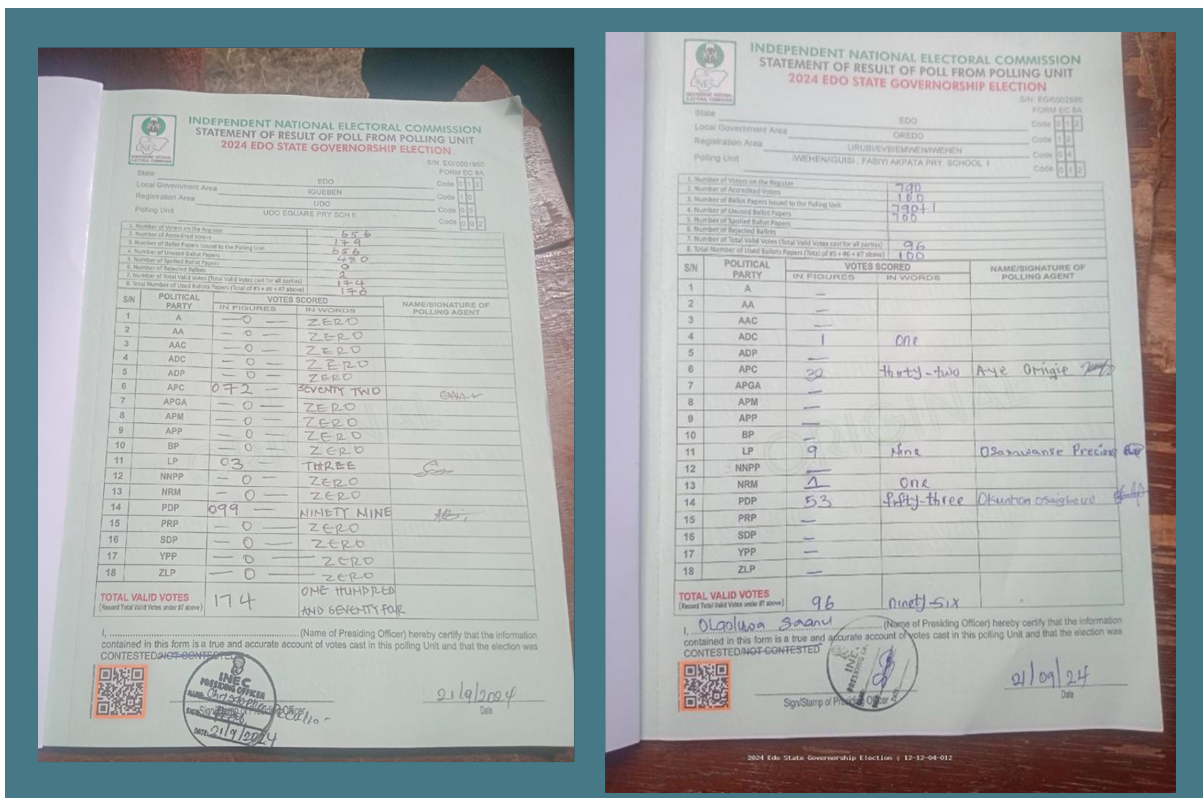 INDEPENDENT NATIONAL ELECTORAL COMMISSION
STATEMENT OF RESULT OF POLL FROM POLLING UNIT
2024 EDO STATE GOVERNORSHIP ELECTION
S/N: EG/0001900
FORM EC 8A
State EDO Code 0 1 2
Local Government Area IGUEBEN Code 1 0
Registration Area UDO Code 0 6
Polling Unit UDO EGUARE PRY SCH II Code 0 0 2
1. Number of Voters on the Register 656
2. Number of Accredited Voters 179
3. Number of Ballot Papers Issued to the Polling Unit 656
4. Number of Unused Ballot Papers 480
5. Number of Spoiled Ballot Papers 0
6. Number of Rejected Ballots 2
7. Number of Total Valid Votes (Total Valid Votes cast for all parties) 174
8. Total Number of Used Ballots Papers (Total of #5 + #6 + #7 above) 176
S/N POLITICAL PARTY VOTES SCORED NAME/SIGNATURE OF POLLING AGENT
IN FIGURES IN WORDS
1 A — 0 — ZERO
2 AA — 0 — ZERO
3 AAC — 0 — ZERO
4 ADC — 0 — ZERO
5 ADP — 0 — ZERO
6 APC 072 — SEVENTY TWO
7 APGA — 0 — ZERO
8 APM — 0 — ZERO
9 APP — 0 — ZERO
10 BP — 0 — ZERO
11 LP 03 — THREE
12 NNPP — 0 — ZERO
13 NRM — 0 — ZERO
14 PDP 099 — NINETY NINE
15 PRP — 0 — ZERO
16 SDP — 0 — ZERO
17 YPP — 0 — ZERO
18 ZLP — 0 — ZERO
TOTAL VALID VOTES 174 ONE HUNDRED
(Record Total Valid Votes under #7 above) AND SEVENTY FOUR
I, (Name of Presiding Officer) hereby certify that the information
contained in this form is a true and accurate account of votes cast in this polling Unit and that the election was
CONTESTED/NOT CONTESTED
INEC
PRESIDING OFFICER
NAME:
Sign/Stamp of Presiding Officer
DATE: 21/9/2024
21/9/2024
Date
INDEPENDENT NATIONAL ELECTORAL COMMISSION
STATEMENT OF RESULT OF POLL FROM POLLING UNIT
2024 EDO STATE GOVERNORSHIP ELECTION
S/N: EG/0002880
FORM EC 8A
State EDO Code 0 1 2
Local Government Area OREDO Code 1 2
Registration Area URUBI/EVBIEMWEN/IWEHEN Code 0 4
Polling Unit IWEHEN/GUISI, FABIYI AKPATA PRY. SCHOOL 1 Code 0 1 2
1. Number of Voters on the Register 790
2. Number of Accredited Voters 100
3. Number of Ballot Papers Issued to the Polling Unit
4. Number of Unused Ballot Papers
5. Number of Spoiled Ballot Papers
6. Number of Rejected Ballots
7. Number of Total Valid Votes (Total Valid Votes cast for all parties) 96
8. Total Number of Used Ballots Papers (Total of #5 + #6 + #7 above) 100
S/N POLITICAL PARTY VOTES SCORED NAME/SIGNATURE OF POLLING AGENT
IN FIGURES IN WORDS
1 A —
2 AA —
3 AAC —
4 ADC 1 One
5 ADP —
6 APC 32 thirty-two Aye Omigie
7 APGA —
8 APM —
9 APP —
10 BP —
11 LP 9 Nine Osamwanse Precious
12 NNPP —
13 NRM 1 One
14 PDP 53 fifty-three Okunbon Osaigbovo
15 PRP —
16 SDP —
17 YPP —
18 ZLP —
TOTAL VALID VOTES 96 Ninety-six
(Record Total Valid Votes under #7 above)
I, (Name of Presiding Officer) hereby certify that the information
contained in this form is a true and accurate account of votes cast in this polling Unit and that the election was
CONTESTED/NOT CONTESTED
INEC
Sign/Stamp of Presiding Officer
21/09/24
Date
2024 Edo State Governorship Election | 12-12-04-012